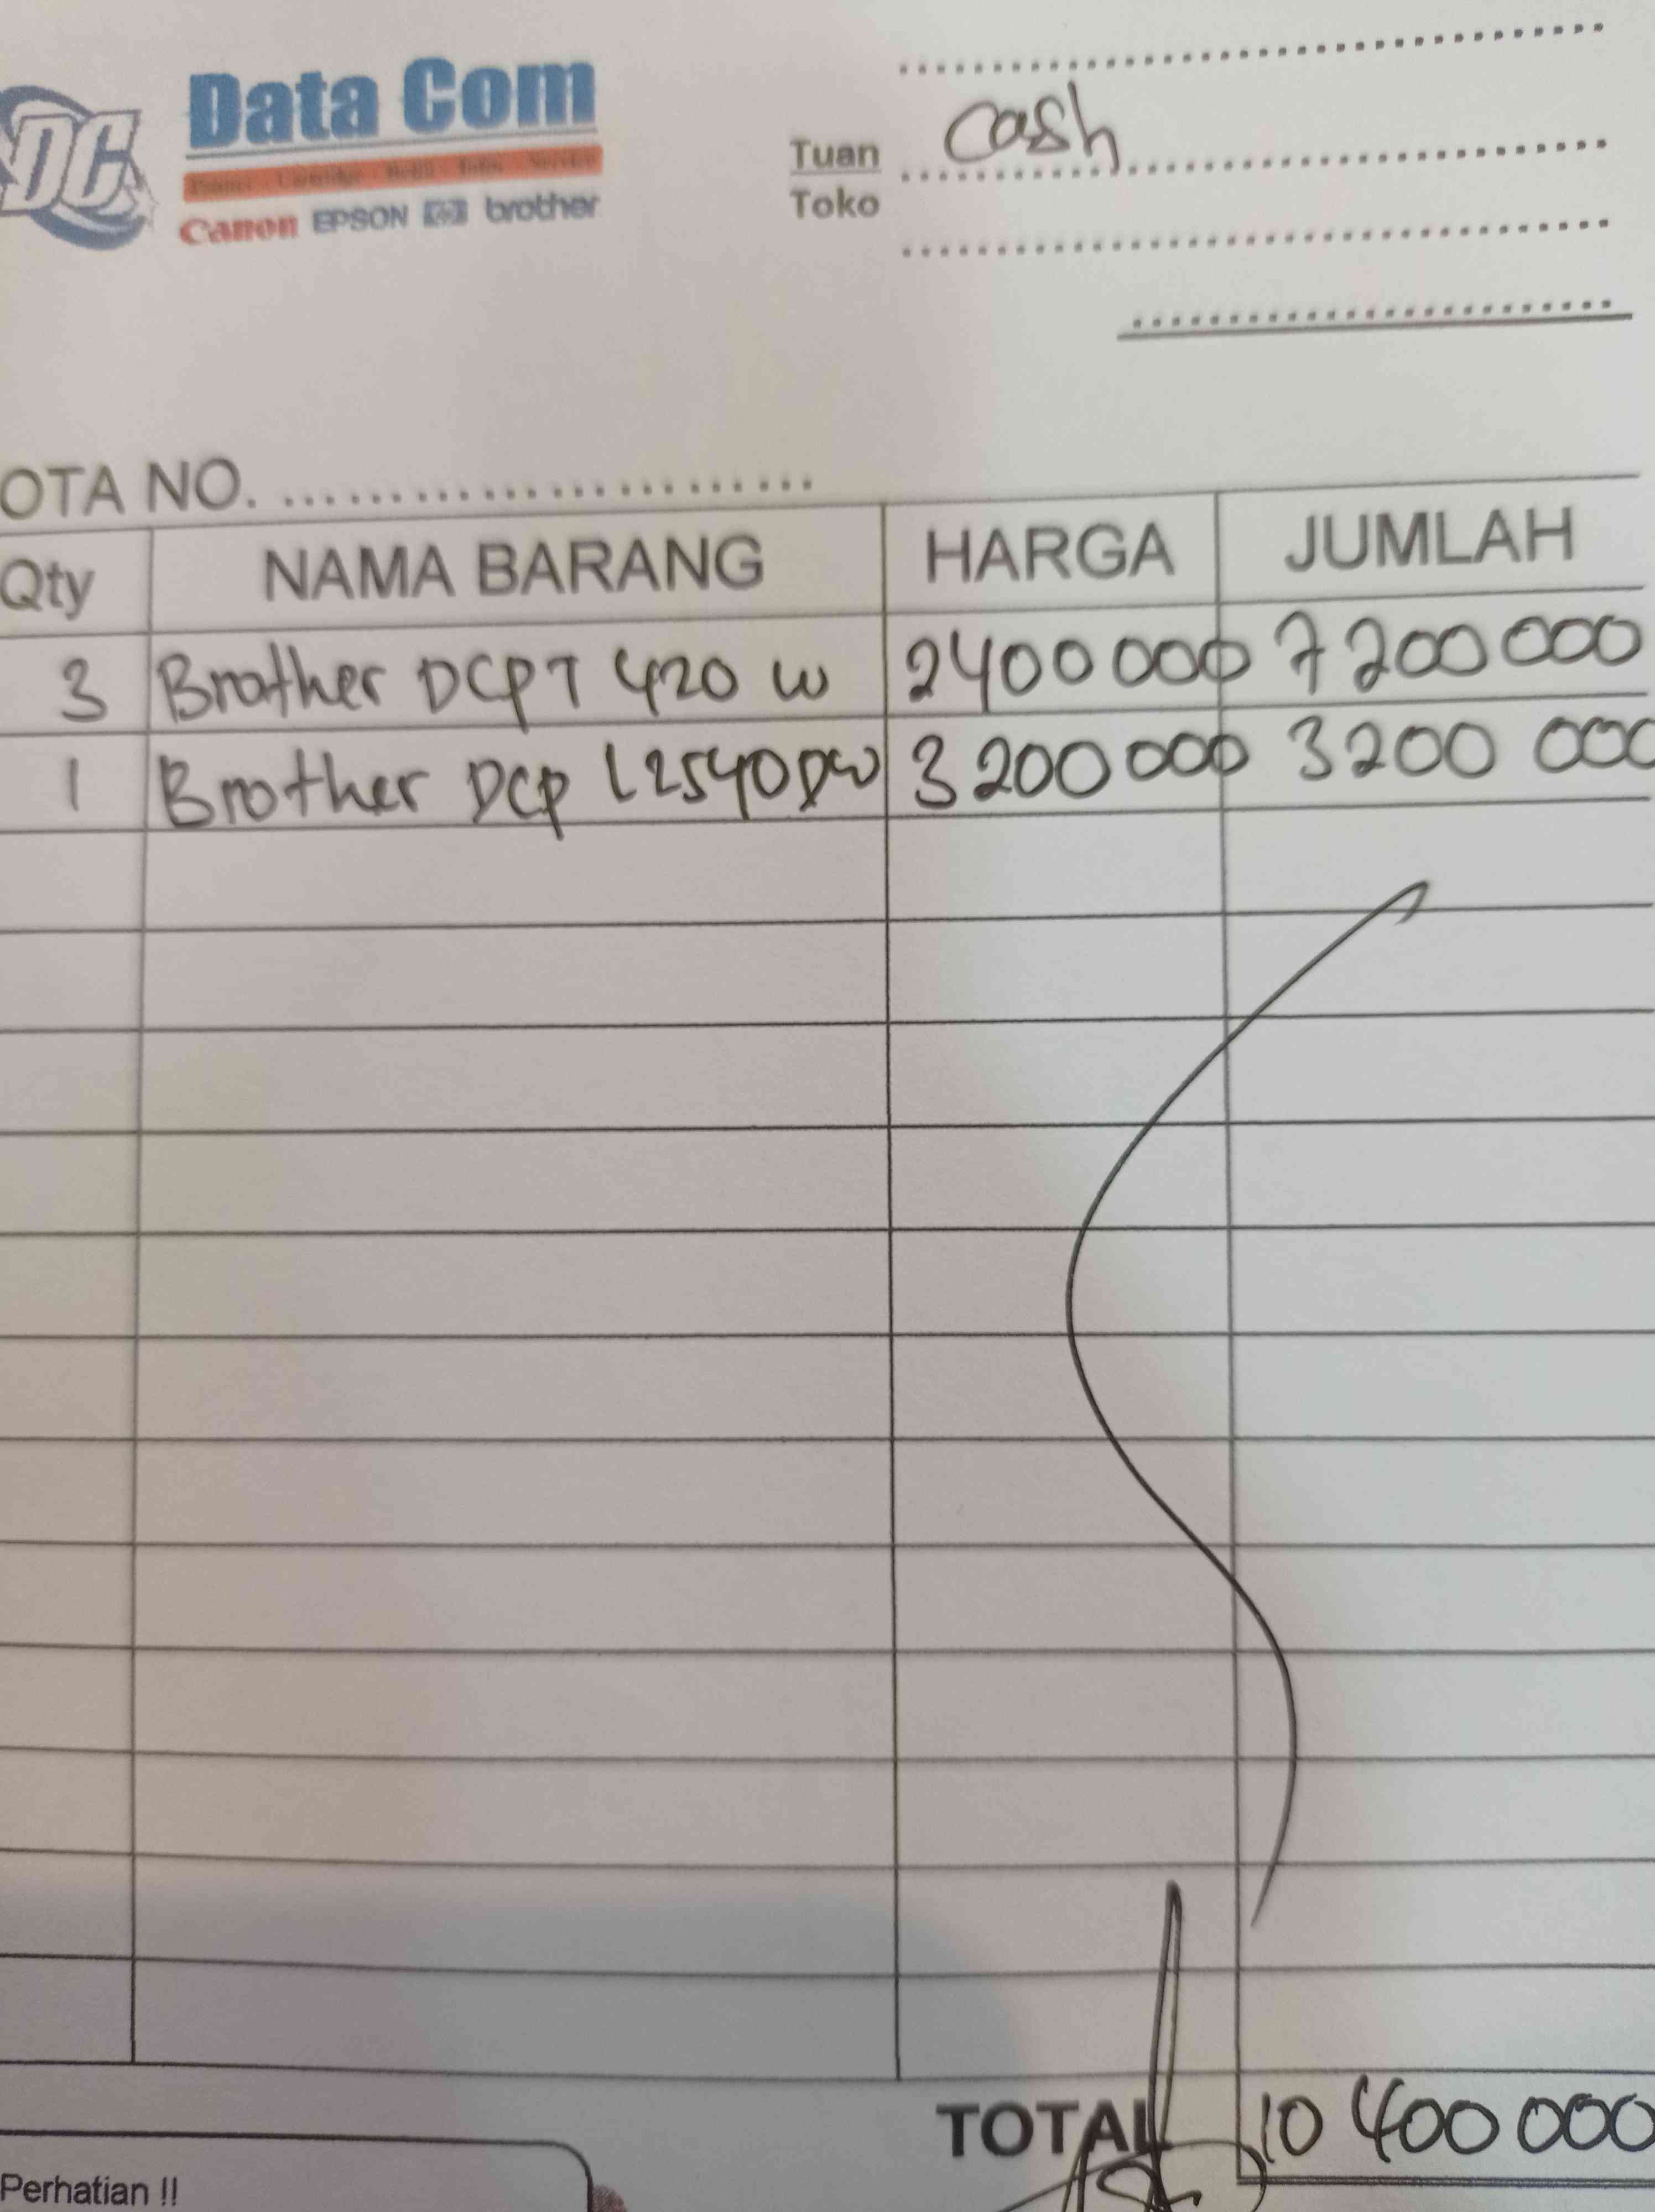 DC
Data Com
Printer - Cartridge - Refill - Infus - Service
Canon EPSON hp brother
Tuan cash
Toko
OTA NO. ..............................
Qty NAMA BARANG HARGA JUMLAH
3 Brother DCPT 420 W 2400 000 7 200 000
1 Brother DCP L2540DW 3 200 000 3200 000
TOTAL 10 400 000
Perhatian !!